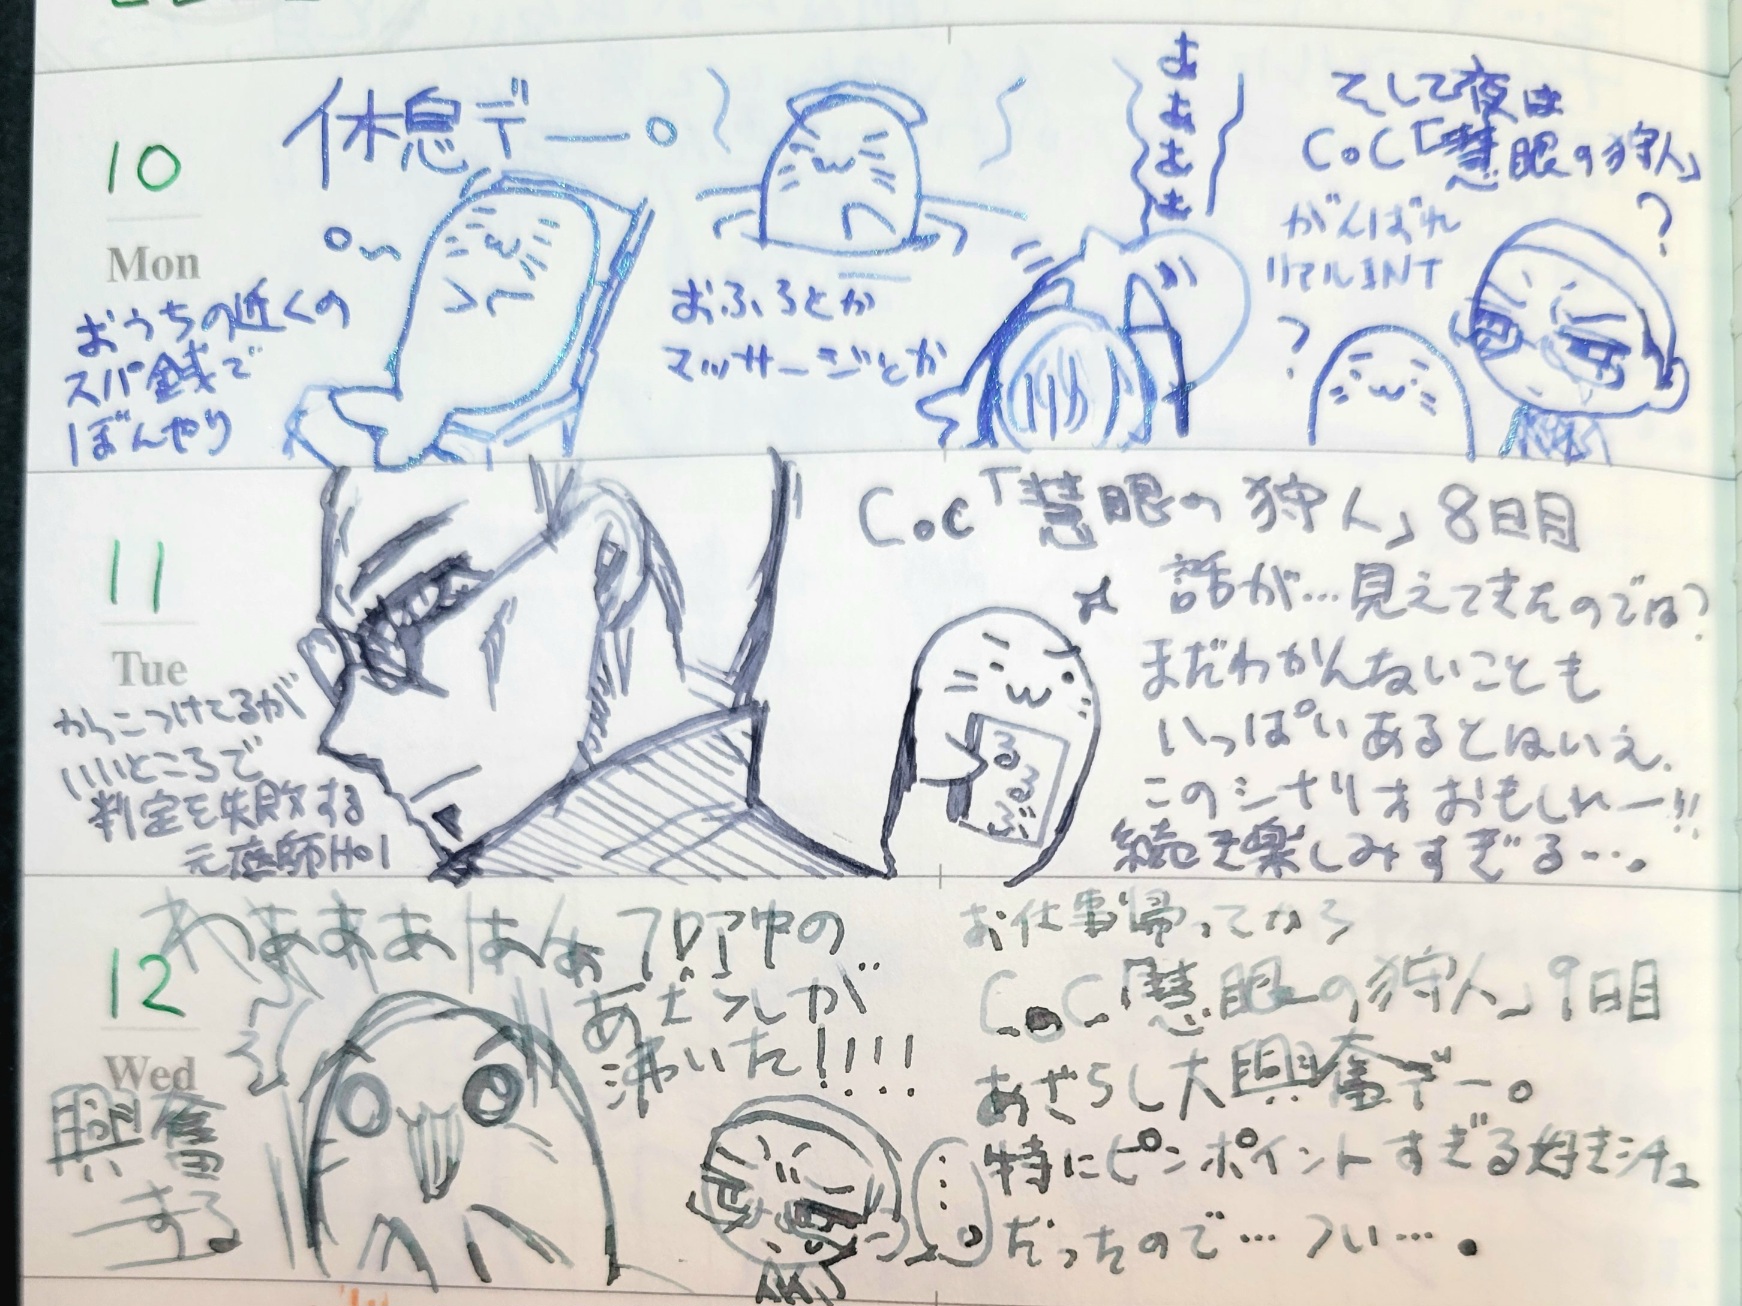 10
Mon
休息デー。
おうちの近くの
スパ銭で
ぼんやり
おふろとか
マッサージとか
そして夜は
CoC「慧眼の狩人」
がんばれ
リアルINT
?
?
11
Tue
かっこつけてるが
いいところで
判定を失敗する
元庭師HO1
CoC「慧眼の狩人」8日目
話が…見えてきたのでは?
まだわかんないことも
いっぱいあるとはいえ、
このシナリオおもしれー!!
続き楽しみすぎる…。
るるぶ
12
Wed
興奮
する
わぁぁぁぁ
フロア中の
あざらしが
沸いた!!!!
お仕事帰ってから
CoC「慧眼の狩人」9日目
あざらし大興奮デー。
特にピンポイントすぎる好きシチュ
だったので…つい…。